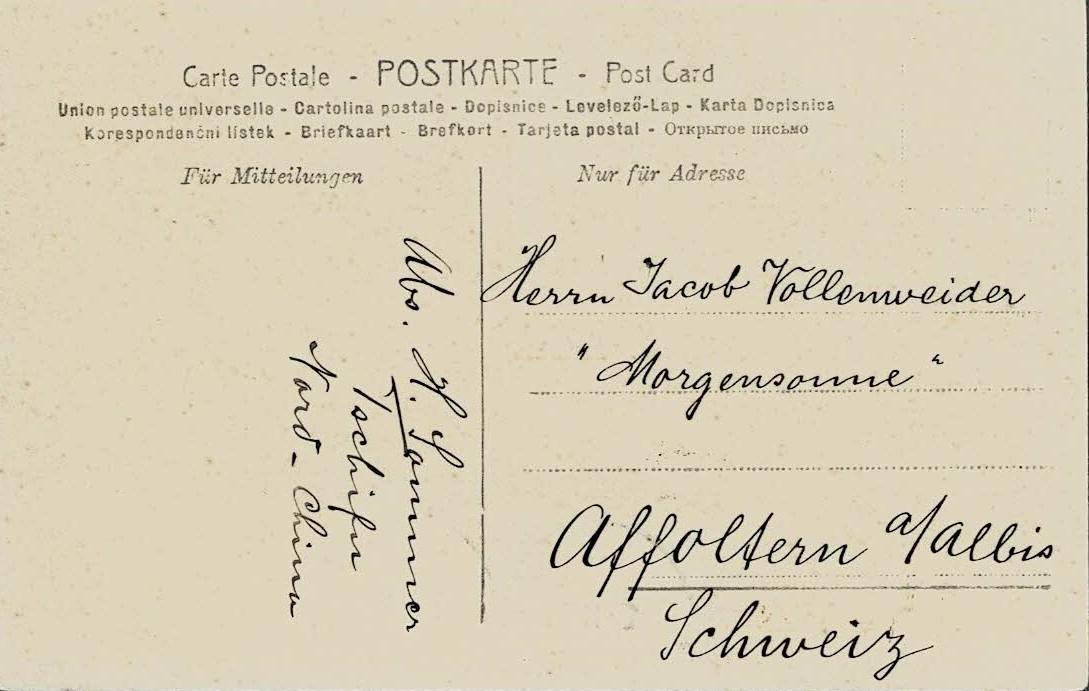 Carte Postale - POSTKARTE - Post Card
Union postale universelle - Cartolina postale - Dopisnice - Levelező-Lap - Karta Dopisnica
Korespondenční lístek - Briefkaart - Brefkort - Tarjeta postal - Открытое письмо
Für Mitteilungen
Nur für Adresse
Abs. H. Sommer
Tschifu
Nord-China
Herrn Jacob Vollenweider
"Morgensonne"
Affoltern a/Albis
Schweiz